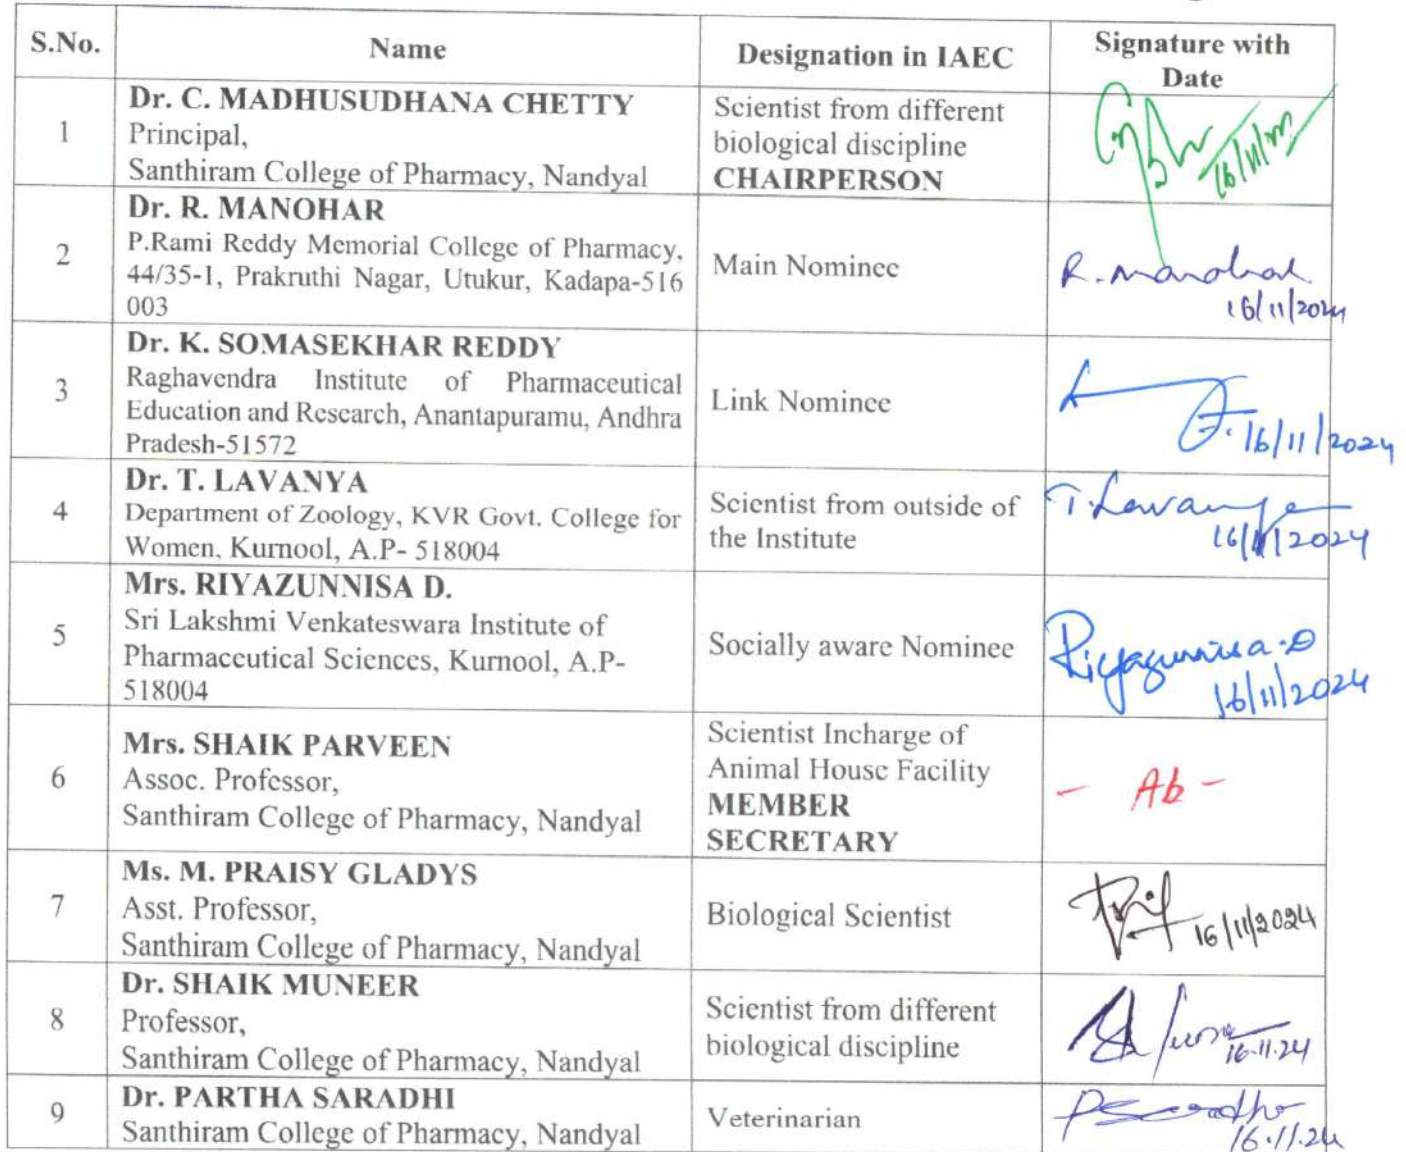 S.No.
Name
Designation in IAEC
Signature with
Date
1
Dr. C. MADHUSUDHANA CHETTY
Principal,
Santhiram College of Pharmacy, Nandyal
Scientist from different
biological discipline
CHAIRPERSON
2
Dr. R. MANOHAR
P.Rami Reddy Memorial College of Pharmacy,
44/35-1, Prakruthi Nagar, Utukur, Kadapa-516
003
Main Nominee
R. Manohar
16/11/2024
3
Dr. K. SOMASEKHAR REDDY
Raghavendra Institute of Pharmaceutical
Education and Research, Anantapuramu, Andhra
Pradesh-51572
Link Nominee
16/11/2024
4
Dr. T. LAVANYA
Department of Zoology, KVR Govt. College for
Women, Kurnool, A.P- 518004
Scientist from outside of
the Institute
T. Lavanya
16/11/2024
5
Mrs. RIYAZUNNISA D.
Sri Lakshmi Venkateswara Institute of
Pharmaceutical Sciences, Kurnool, A.P-
518004
Socially aware Nominee
Riyazunnisa.D
16/11/2024
6
Mrs. SHAIK PARVEEN
Assoc. Professor,
Santhiram College of Pharmacy, Nandyal
Scientist Incharge of
Animal House Facility
MEMBER
SECRETARY
- Ab -
7
Ms. M. PRAISY GLADYS
Asst. Professor,
Santhiram College of Pharmacy, Nandyal
Biological Scientist
16/11/2024
8
Dr. SHAIK MUNEER
Professor,
Santhiram College of Pharmacy, Nandyal
Scientist from different
biological discipline
16.11.24
9
Dr. PARTHA SARADHI
Santhiram College of Pharmacy, Nandyal
Veterinarian
16.11.24